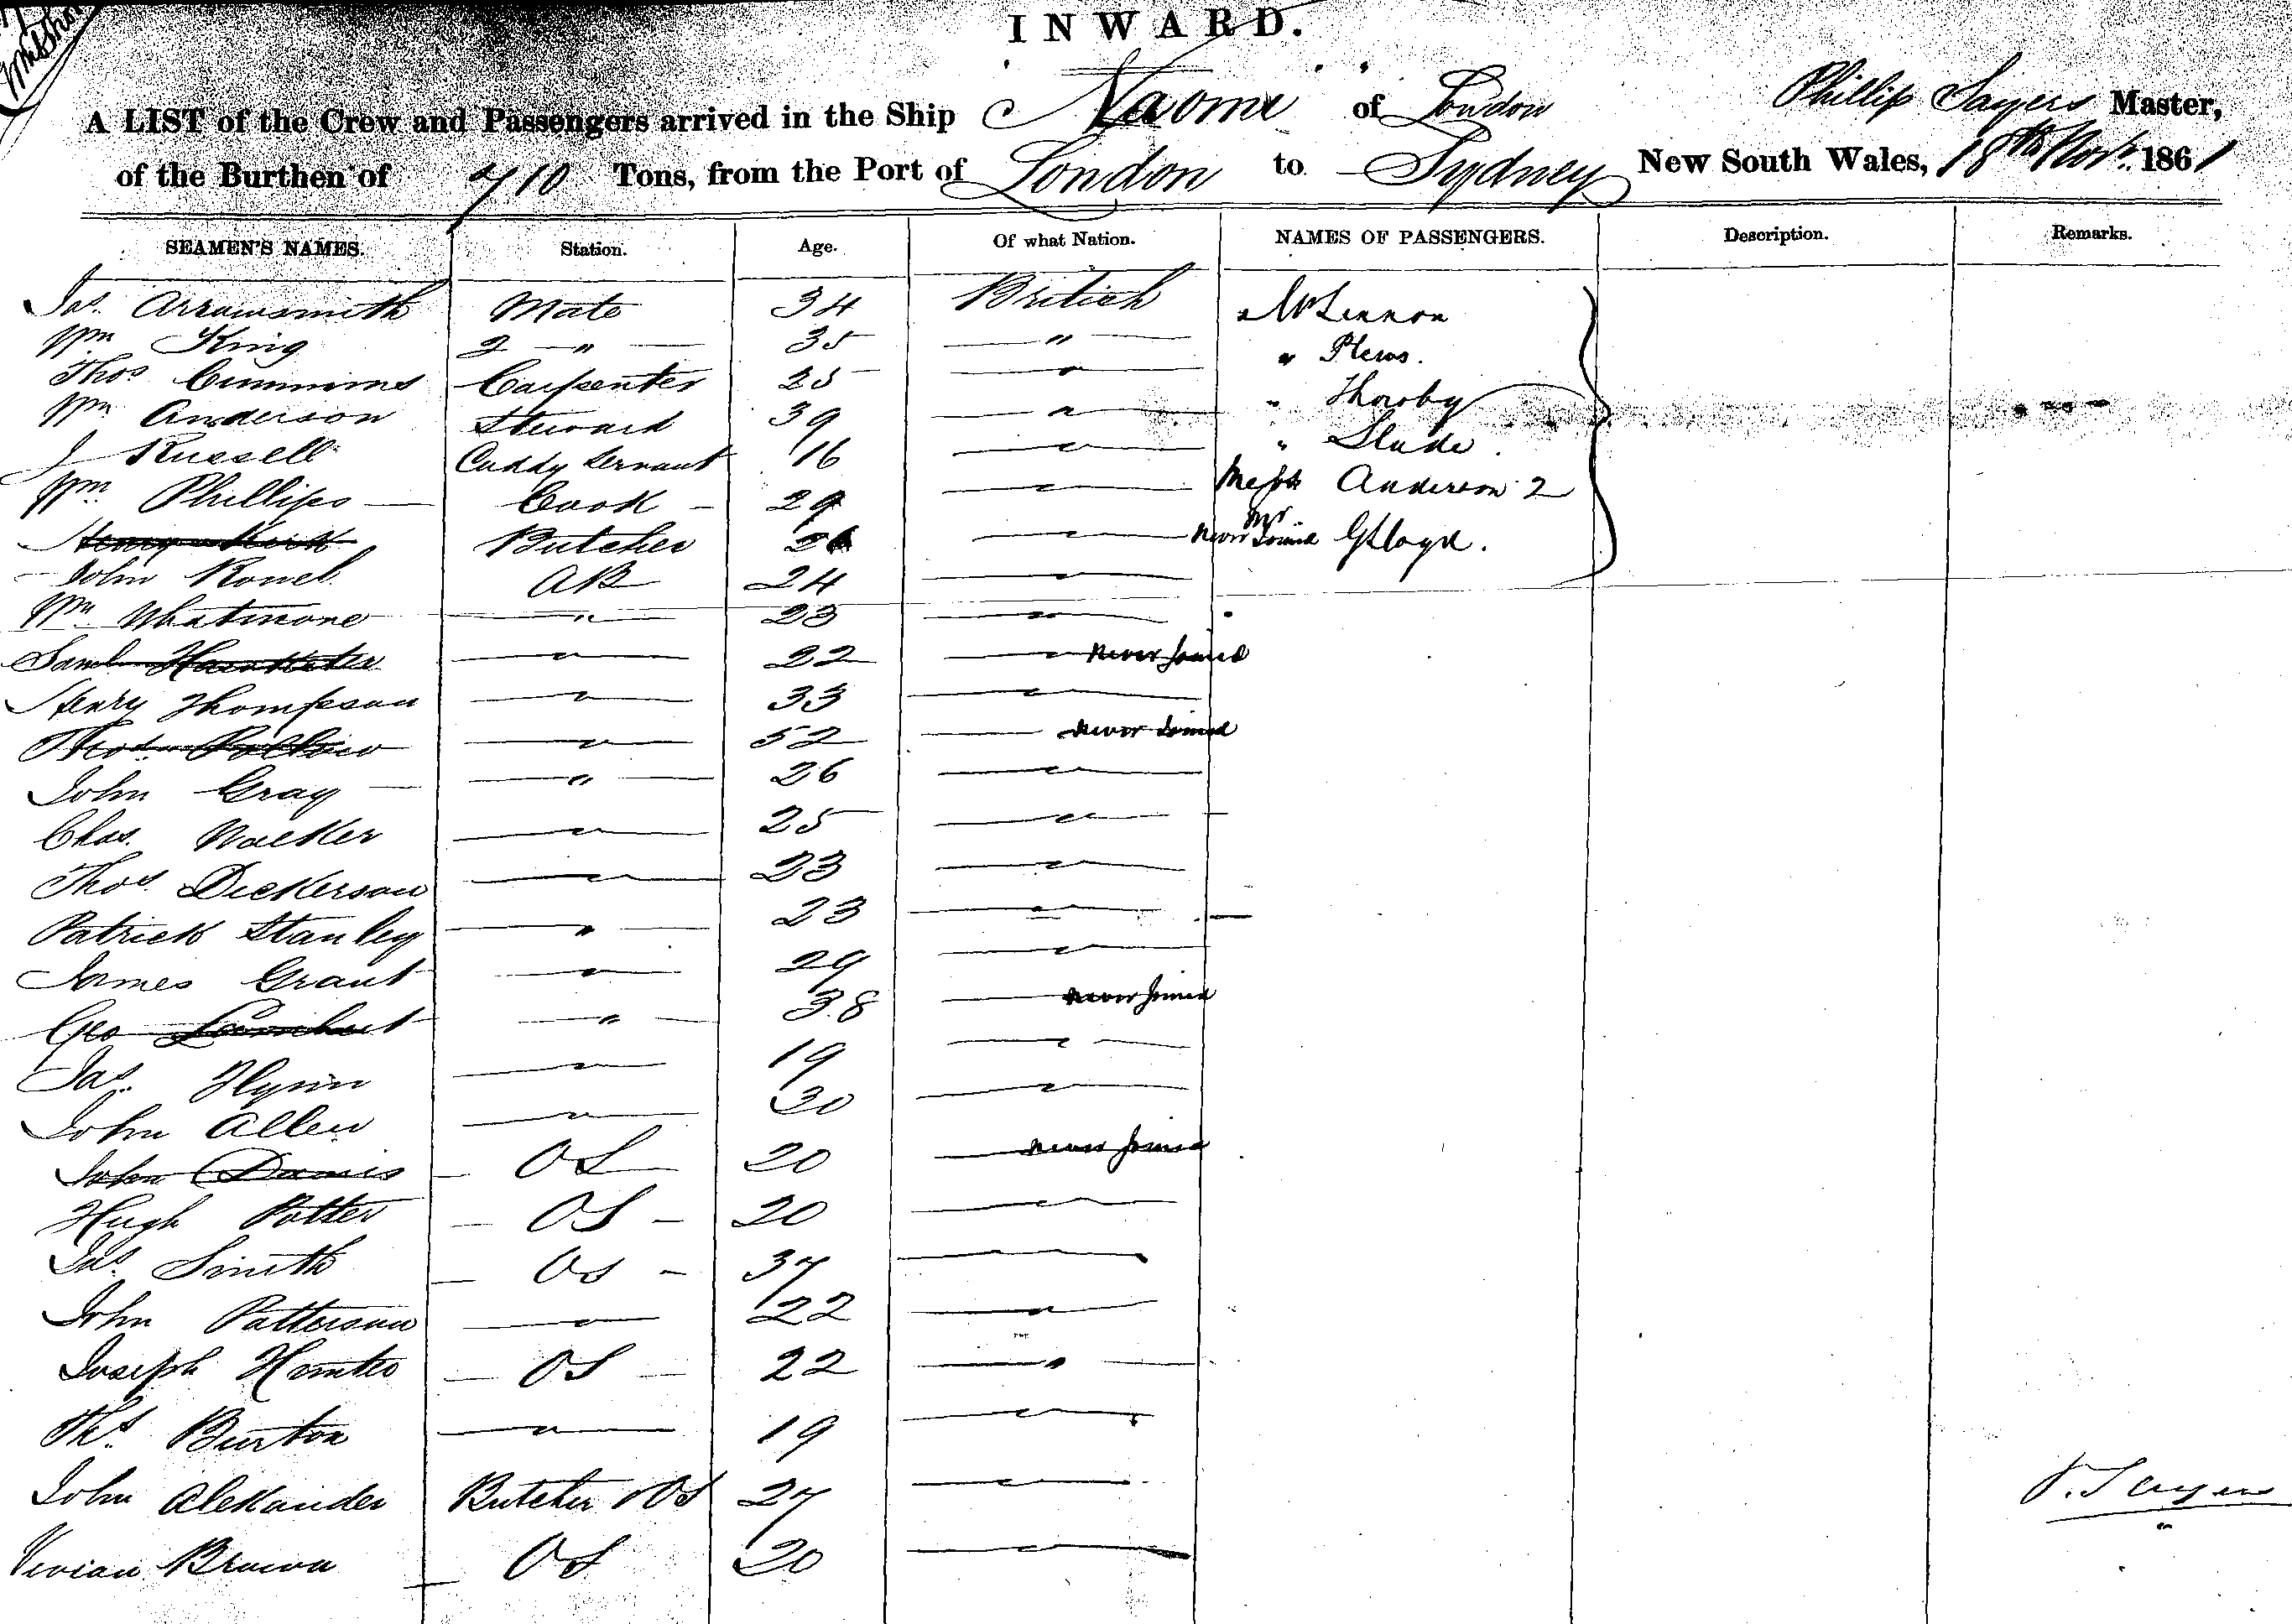 INWARD.
A LIST of the Crew and Passengers arrived in the Ship Naomi of London Phillip Sayers Master,
of the Burthen of 710 Tons, from the Port of London to Sydney New South Wales, 18th Novr. 1861
SEAMEN'S NAMES. Station. Age. Of what Nation. NAMES OF PASSENGERS. Description. Remarks.
Jas. Arrowsmith Mate 34 British " McLennon
Wm King 2 " 35 " " Plews.
Thos Cummins Carpenter 25 " " Thornby
Wm Anderson Steward 39 " " Slade.
J Russell Cuddy Servant 16 "
Wm Phillips Cook 29 " Messrs Anderson 2
Henry Kirk Butcher 26 " never Joined Mr Lloyd.
John Rowel AB 24 "
Wm Whatmore " 23 "
Saml " 22 " never Joined
Henry Thompson " 33 "
Thos " 52 never Joined
John Gray " 26 "
Chas. Walker " 25 "
Thos. Dickerson " 23 "
Patrick Stanley " 23 "
James Grant " 29 "
Geo Lambert " 38 never Joined
Jas. Flynn " 19 "
John Allen " 30 "
John Dames OS 20 never Joined
Hugh Potter OS 20 "
Jas. Smith OS 37 "
John Patterson " 22 "
Joseph Hunter OS 22 "
Ths. Burton " 19 "
John Alexander Butcher & OS 27 "
P. Sayers
Vivian Brown OS 20 "